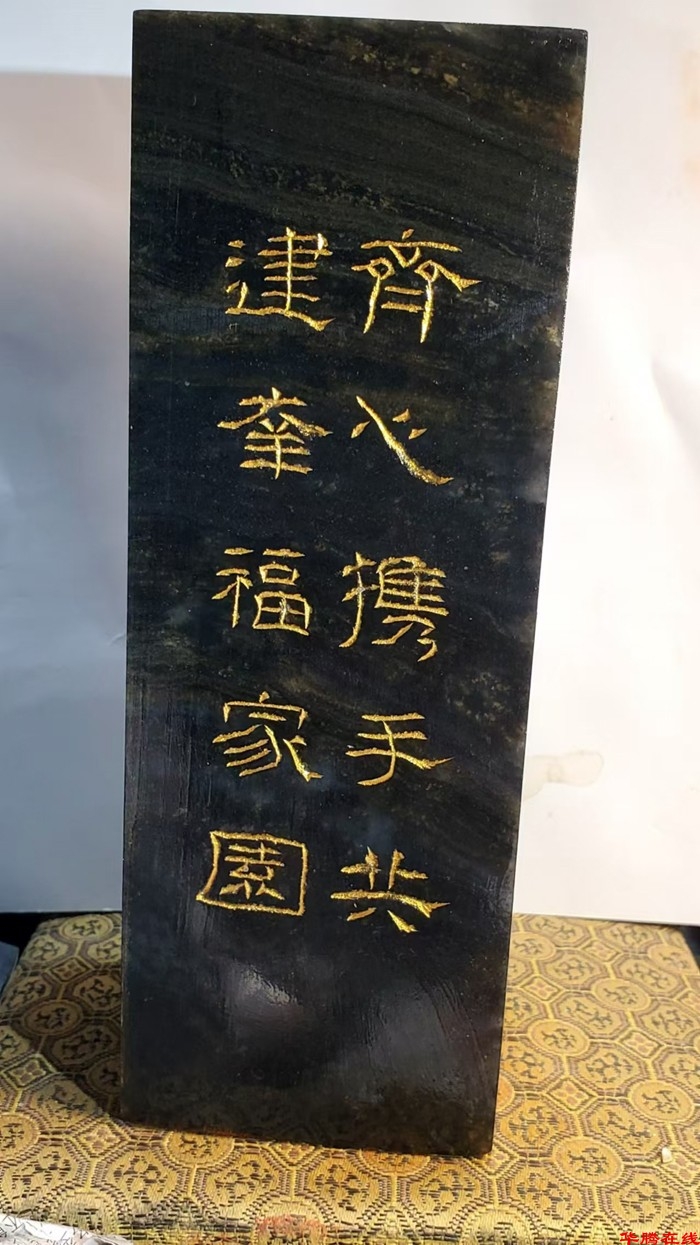 齊心携手共
建幸福家園
华腾在线